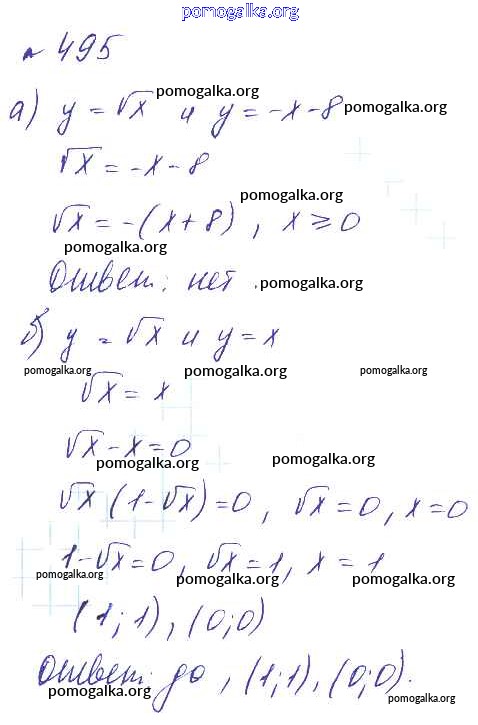 pomogalka.org
№ 495
а) y = √x и y = -x - 8 pomogalka.org pomogalka.org
√x = -x - 8
pomogalka.org
√x = -(x + 8), x ≥ 0
pomogalka.org
Ответ: нет. pomogalka.org
б) y = √x и y = x
pomogalka.org pomogalka.org pomogalka.org
√x = x
√x - x = 0
pomogalka.org pomogalka.org
√x (1 - √x) = 0, √x = 0, x = 0
1 - √x = 0, √x = 1, x = 1
pomogalka.org pomogalka.org pomogalka.org
(1; 1), (0; 0)
Ответ: да, (1; 1), (0; 0).
pomogalka.org pomogalka.org